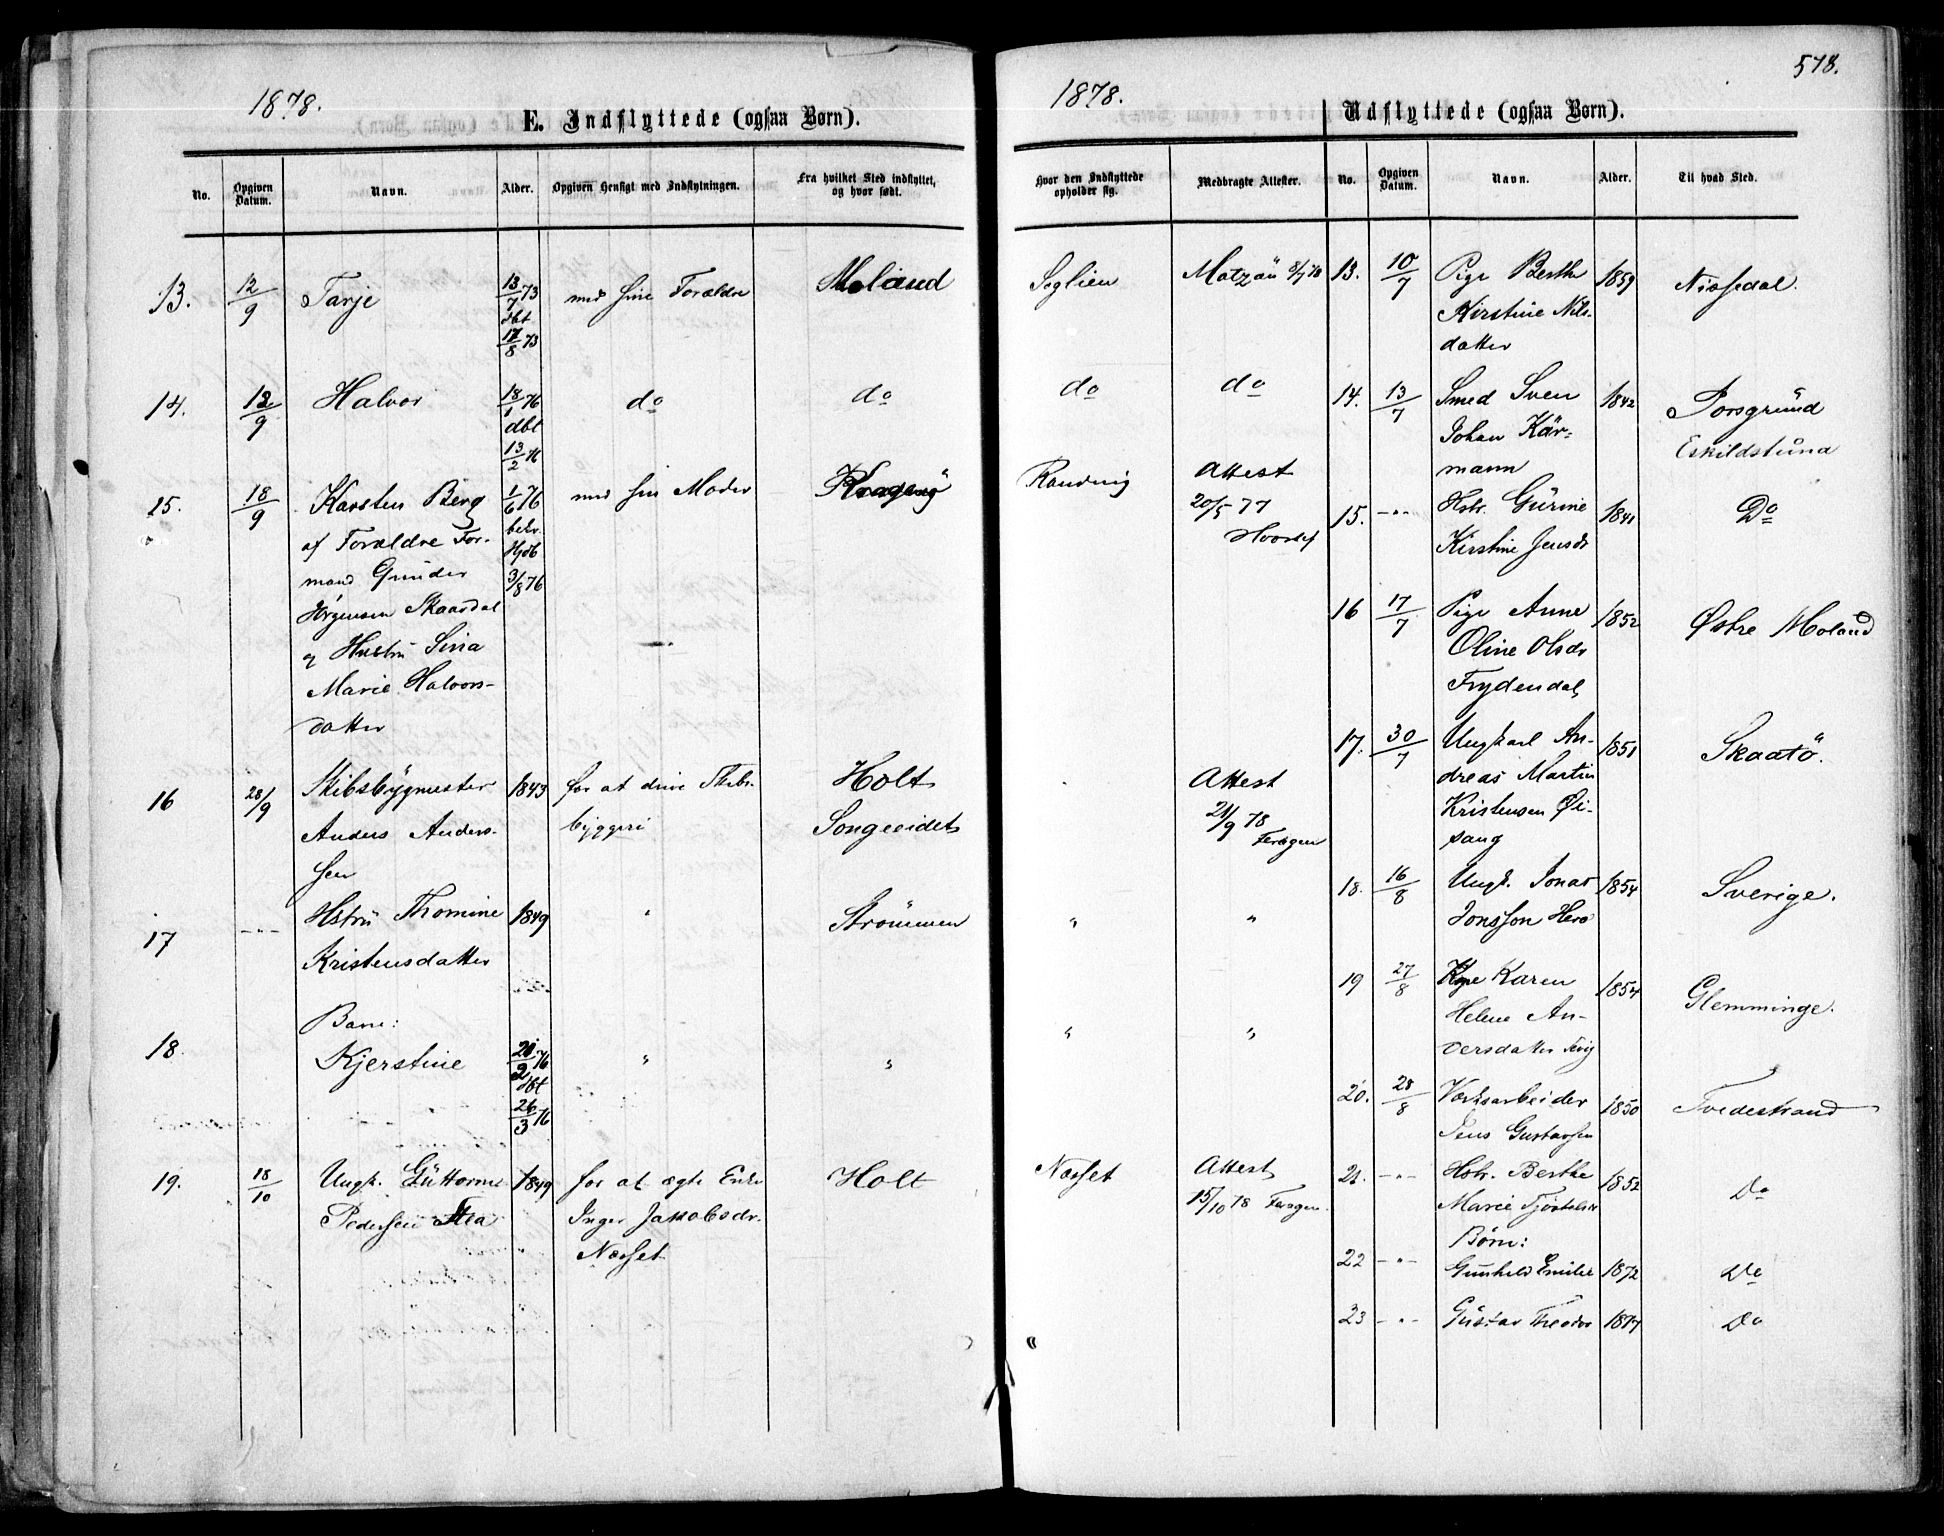 578.
1878.
E. Indflyttede (ogsaa Børn).
No.
Opgiven Datum.
Navn.
Alder.
Opgiven Hensigt med Indflytningen.
Fra hvilket Sted indflyttet, og hvor født.
13. 12/9 Tarje 13/7 73 med sine Forældre Moland
dbt
17/8 73
14. 12/9 Halvor 18/1 76 do do
dbt
13/2 76
15. 18/9 Karsten Berg 1/6 76 med sin Moder Kragerø
af Forældre For-
mand Gunder 3/8 76
Jörgensen Skaardal
og Hustrü Sina
Marie Halvors-
datter
16 28/9 Skibsbygmester 1843 for at drive Skibs- Holt
Anders Anders- byggeri Songeeidet
sen
17 -"- Hstrü Thomine 1849 " Strömmen
Kristensdatter
Barn:
18. Kjerstine 20/2 76 " "
dbt
26/3 76
19. 18/10 Ungk. Güttorm 1849 for at ægte Enke Holt
Pedersen Inger Jakobsdr.
Næsset
1878.
Udflyttede (ogsaa Børn).
Hvor den Indflyttede opholder sig.
Medbragte Attester.
No.
Opgiven Datum.
Navn.
Alder.
Til hvad Sted.
Seglien 8/9 78 13. 10/7 Pige Berthe 1859 Nissedal.
Kirstine Nils-
datter
do do 14. 13/7 Smed Sven 1842 Porsgründ
Johan Kär- Eskildstüna
mann
Randvig Attest
20/5 77
15. -"- Hstr. Gürine 1841 Do
Kirstine Jensdr
16 17/7 Pige Anne 1852 Østre Moland
Oline Olsdr
Frydendal
17. 30/7 Ungkarl An- 1851 Skaatö.
dreas Martin
Kristensen Øi-
sang
Attest
21/9 78
18. 16/8 Ungk. Jonas 1854 Sverige.
Jonsson
" "
19 27/8 Karen 1854 Glemminge.
Helene An-
dersdatter
" "
20. 28/8 Værksarbeider 1850 Tvedestrand
Jens Gustavsen
Næsset Attest 21. -"- Hstr. Berthe 1852 Do
15/10 78 Marie
Börn:
22 -"- Gunhild Emilie 1872 Do
23 -"- Güstav Theodor 1877 Do
"